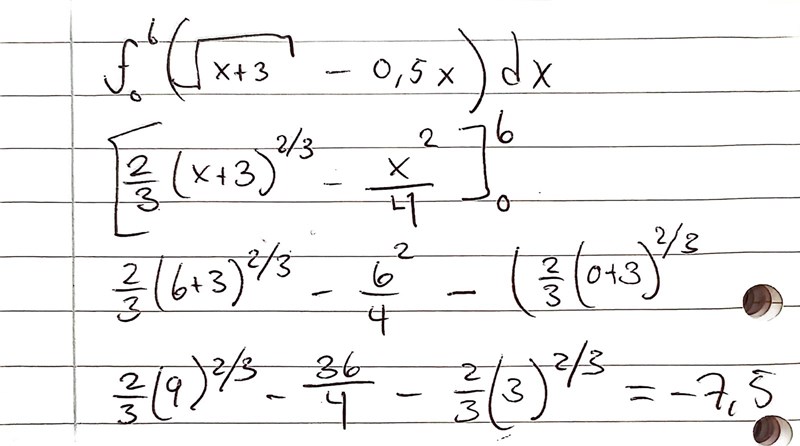 ∫₀⁶ (√(x+3) - 0,5x) dx
[2/3 (x+3)^2/3 - x²/4]₀⁶
2/3 (6+3)^2/3 - 6²/4 - (2/3 (0+3)^2/3
2/3 (9)^2/3 - 36/4 - 2/3 (3)^2/3 = -7,5